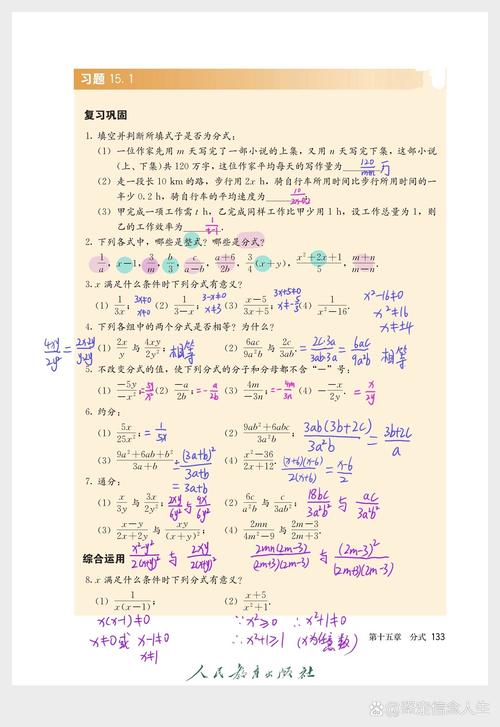 习题 15.1
复习巩固
1. 填空并判断所填式子是否为分式：
(1) 一位作家先用 m 天写完了一部小说的上集，又用 n 天写完下集，这部小说
(上、下集)共 120 万字，这位作家平均每天的写作量为 120/(m+n) 万
(2) 走一段长 10 km 的路，步行用 2x h，骑自行车所用时间比步行所用时间的一
半少 0.2 h，骑自行车的平均速度为
(3) 甲完成一项工作需 t h，乙完成同样工作比甲少用 1 h，设工作总量为 1，则
乙的工作效率为 1/(t-1).
2. 下列各式中，哪些是整式？哪些是分式？
1/a, x-1, 3/m, b/3, c/(a-b), (a+6)/(2b), 3/4(x+y), (x²+2x+1)/5, (m+n)/(m-n).
3. x 满足什么条件时下列分式有意义？
(1) 1/(3x); 3x≠0 x≠0 (2) 1/(3-x); 3-x≠0 x≠3 (3) (x-5)/(3x+5); 3x+5≠0 x≠-5/3 (4) 1/(x²-16). x²-16≠0
x²≠16
x≠±4
4. 下列各组中的两个分式是否相等？为什么？
4xy/2y² = 2x·2y/y·2y (1) 2x/y 与 4xy/2y²; 相等 (2) 6ac/9a²b 与 2c/3ab. = 2c·3a/3ab·3a = 6ac/9a²b 相等
5. 不改变分式的值，使下列分式的分子和分母都不含“－”号：
(1) -5y/-x²; = 5y/x² (2) -a/2b; = -a/2b (3) 4m/-3n; = -4m/3n (4) -(-x/2y). = x/2y
6. 约分：
(1) 5x/25x²; = 1/5x (2) (9ab²+6abc)/3a²b; 3ab(3b+2c)/3a²b = (3b+2c)/a
(3) (9a²+6ab+b²)/(3a+b) = (3a+b)²/(3a+b) (4) (x²-36)/(2x+12). (x+6)(x-6)/2(x+6) = (x-6)/2
= 3a+b
7. 通分：
(1) x/3y 与 3x/2y²; 2xy/6y² 与 9x/6y² (2) 6c/a²b 与 c/3ab²; 18bc/3a²b² 与 ac/3a²b²
(3) (x-y)/(2x+2y) 与 xy/(x+y)²; (4) 2mn/(4m²-9) 与 (2m-3)/(2m+3).
(x²-y²)/2(x+y)² 与 2xy/2(x+y)² 2mn(2m-3)/(2m+3)(2m-3) 与 (2m-3)²/(2m+3)(2m-3)
综合运用
8. x 满足什么条件时下列分式有意义？
(1) 1/x(x-1); (2) (x+5)/(x²+1).
x(x-1)≠0 ∵x²≥0 ∴x²+1≠0
x≠0 或 x-1≠0 ∴x²+1≥1 (x为任意数)
x≠1
第十五章 分式 133
人民教育出版社